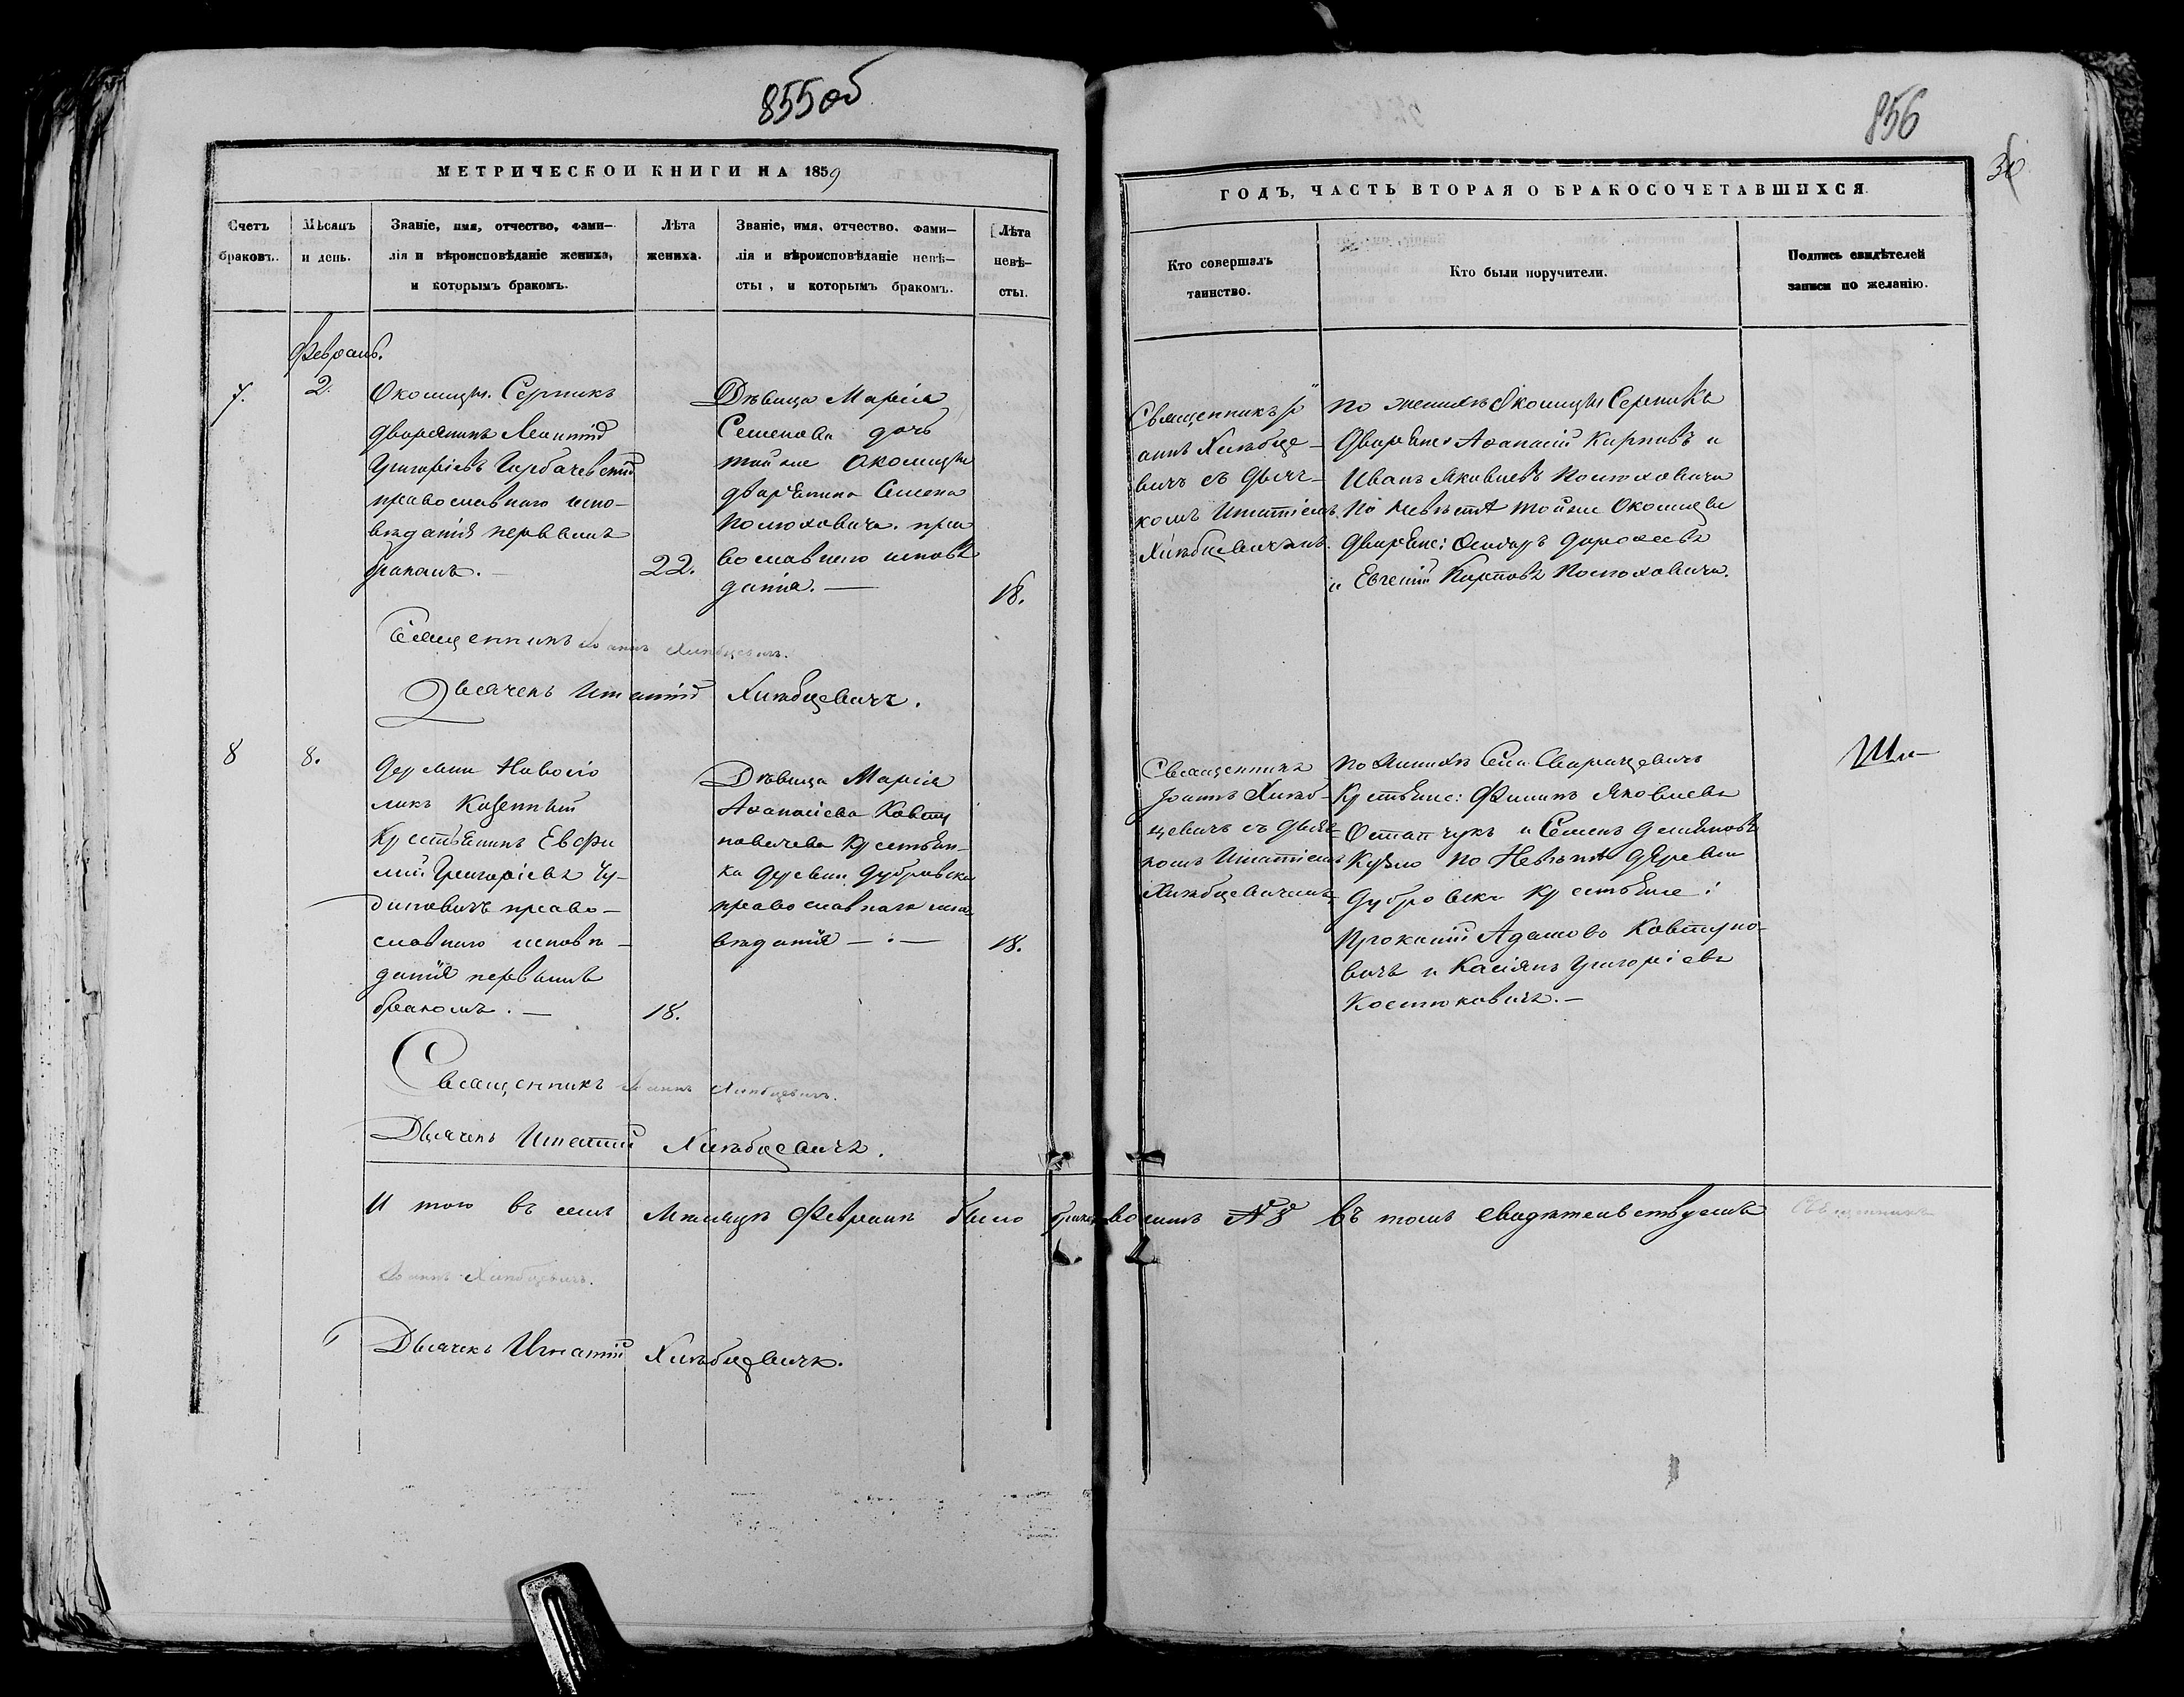 855 об
856
30
МЕТРИЧЕСКОЙ КНИГИ НА 1859
ГОДЪ, ЧАСТЬ ВТОРАЯ О БРАКОСОЧЕТАВШИХСЯ.
Счетъ
браковъ.
Мѣсяцъ
и день.
Званіе, имя, отчество, фами-
лія и вѣроисповѣданіе жениха,
и которымъ бракомъ.
Лѣта
жениха.
Званіе, имя, отчество, фами-
лія и вѣроисповѣданіе невѣ-
сты, и которымъ бракомъ.
Лѣта
невѣ-
сты.
Кто совершалъ
таинство.
Кто были поручители.
Подпись свидѣтелей
записи по желанію.
Февраль.
7.
2.
Околицы Серникъ
дворянинъ Леонтій
Григоріевъ Горбачевскій
православнаго испо-
вѣданія первымъ
бракомъ.—
22.
Дѣвица Марія
Семенова дочь
той же Околицы
дворянина Семена
Полюховича. пра
вославнаго исповѣ
данія.—
18.
Священникъ Іо
аннъ Хлѣбце-
вичъ съ дьяч-
комъ Игнатіемъ
Хлѣбцевичемъ.
по женихѣ Околицы Серникъ
Дворяне: Афанасій Карповъ и
Иванъ Яковлевъ Полюховичи
По Невѣстѣ той же Околицы
Дворяне:
и Евгеній Карповъ Полюховичи.
Священникъ Іоаннъ Хлѣбцевичъ.
Дьячекъ Игнатій Хлѣбцевичъ.
8
8.
Деревни Новосіо
локъ Казенный
Крестьянинъ Евфи
мій Григоріевъ Чу-
диновичъ право-
славнаго исповѣ-
данія первымъ
бракомъ.—
18.
Дѣвица Марія
Афанасіева Ковту
новичева Крестьян-
ка деревни Дубровска
православнаго испо
вѣданія —:—
18.
Священникъ
Іоаннъ Хлѣб-
цевичъ съ дьяч-
комъ Игнатіемъ
Хлѣбцевичемъ
По Женихѣ Села Сварицевичъ
Крестьяне: Филипъ Яковлевъ
Остапчукъ и Семенъ Демьяновъ
по Невѣстѣ деревни
Дубровскъ Крестьяне:
Прокопій Адамовъ Ковтуно-
вичъ и Касіянъ Григоріевъ
Костюковичъ.—
Священникъ Іоаннъ Хлѣбцевичъ.
Дьячекъ Игнатій Хлѣбцевичъ.
И того въ семъ Мѣсяцѣ Февралѣ было браковъ восемь № 8 въ томъ свидѣтельствуемъ Священникъ
Іоаннъ Хлѣбцевичъ.
Дьячекъ Игнатій Хлѣбцевичъ.